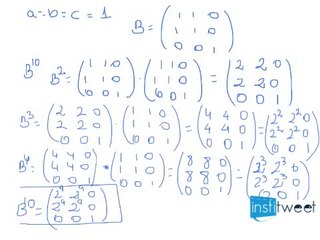 a=b=c=1 B=(1 1 0
1 1 0
0 0 1)
B^10 B^2=(1 1 0
1 1 0
0 0 1)·(1 1 0
1 1 0
0 0 1)=(2 2 0
2 2 0
0 0 1)
B^3=(2 2 0
2 2 0
0 0 1)·(1 1 0
1 1 0
0 0 1)=(4 4 0
4 4 0
0 0 1)=(2^2 2^2 0
2^2 2^2 0
0 0 1)
B^4=(4 4 0
4 4 0
0 0 1)·(1 1 0
1 1 0
0 0 1)=(8 8 0
8 8 0
0 0 1)=(2^3 2^3 0
2^3 2^3 0
0 0 1)
B^10=(2^9 2^9 0
2^9 2^9 0
0 0 1)
institweet